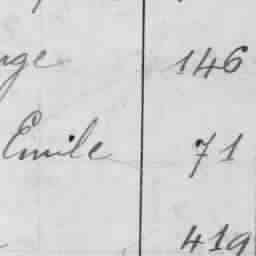 146
Emile 71
419